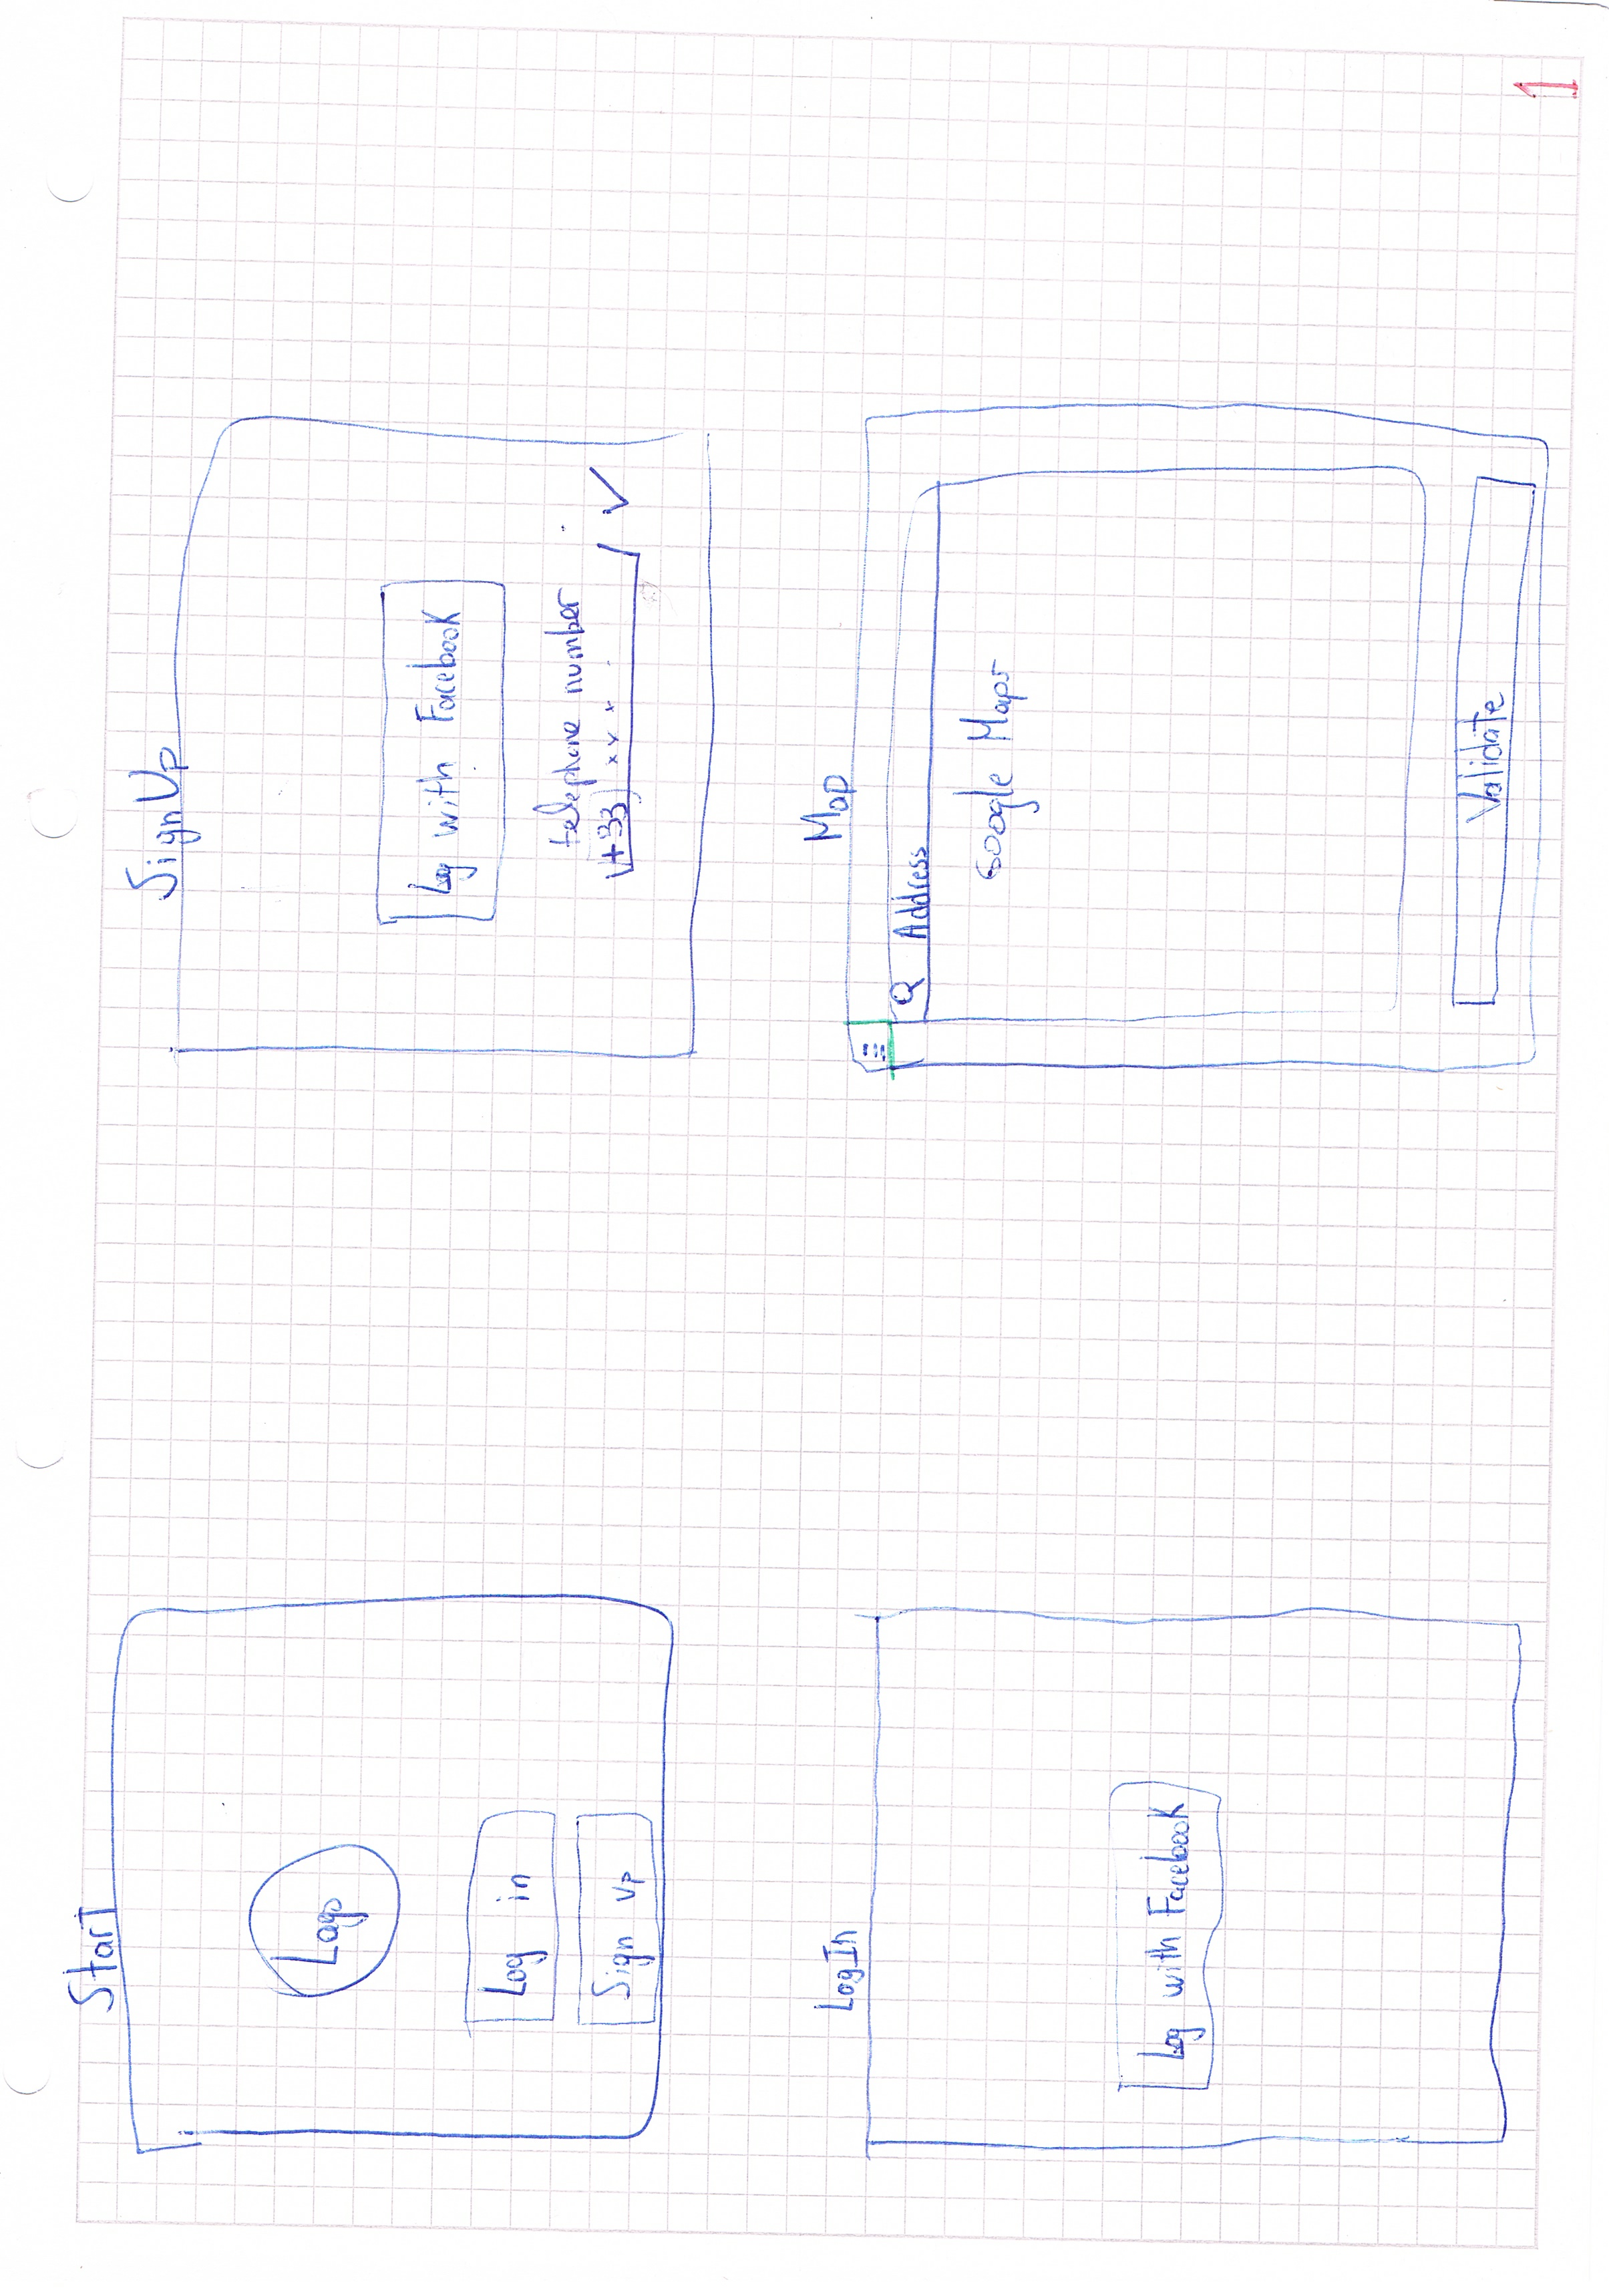 Start
Logo
Log in
Sign up
SignUp
Log with Facebook
telephone number
+33 xxx
LogIn
Log with Facebook
Map
Address
Google Maps
Validate
1